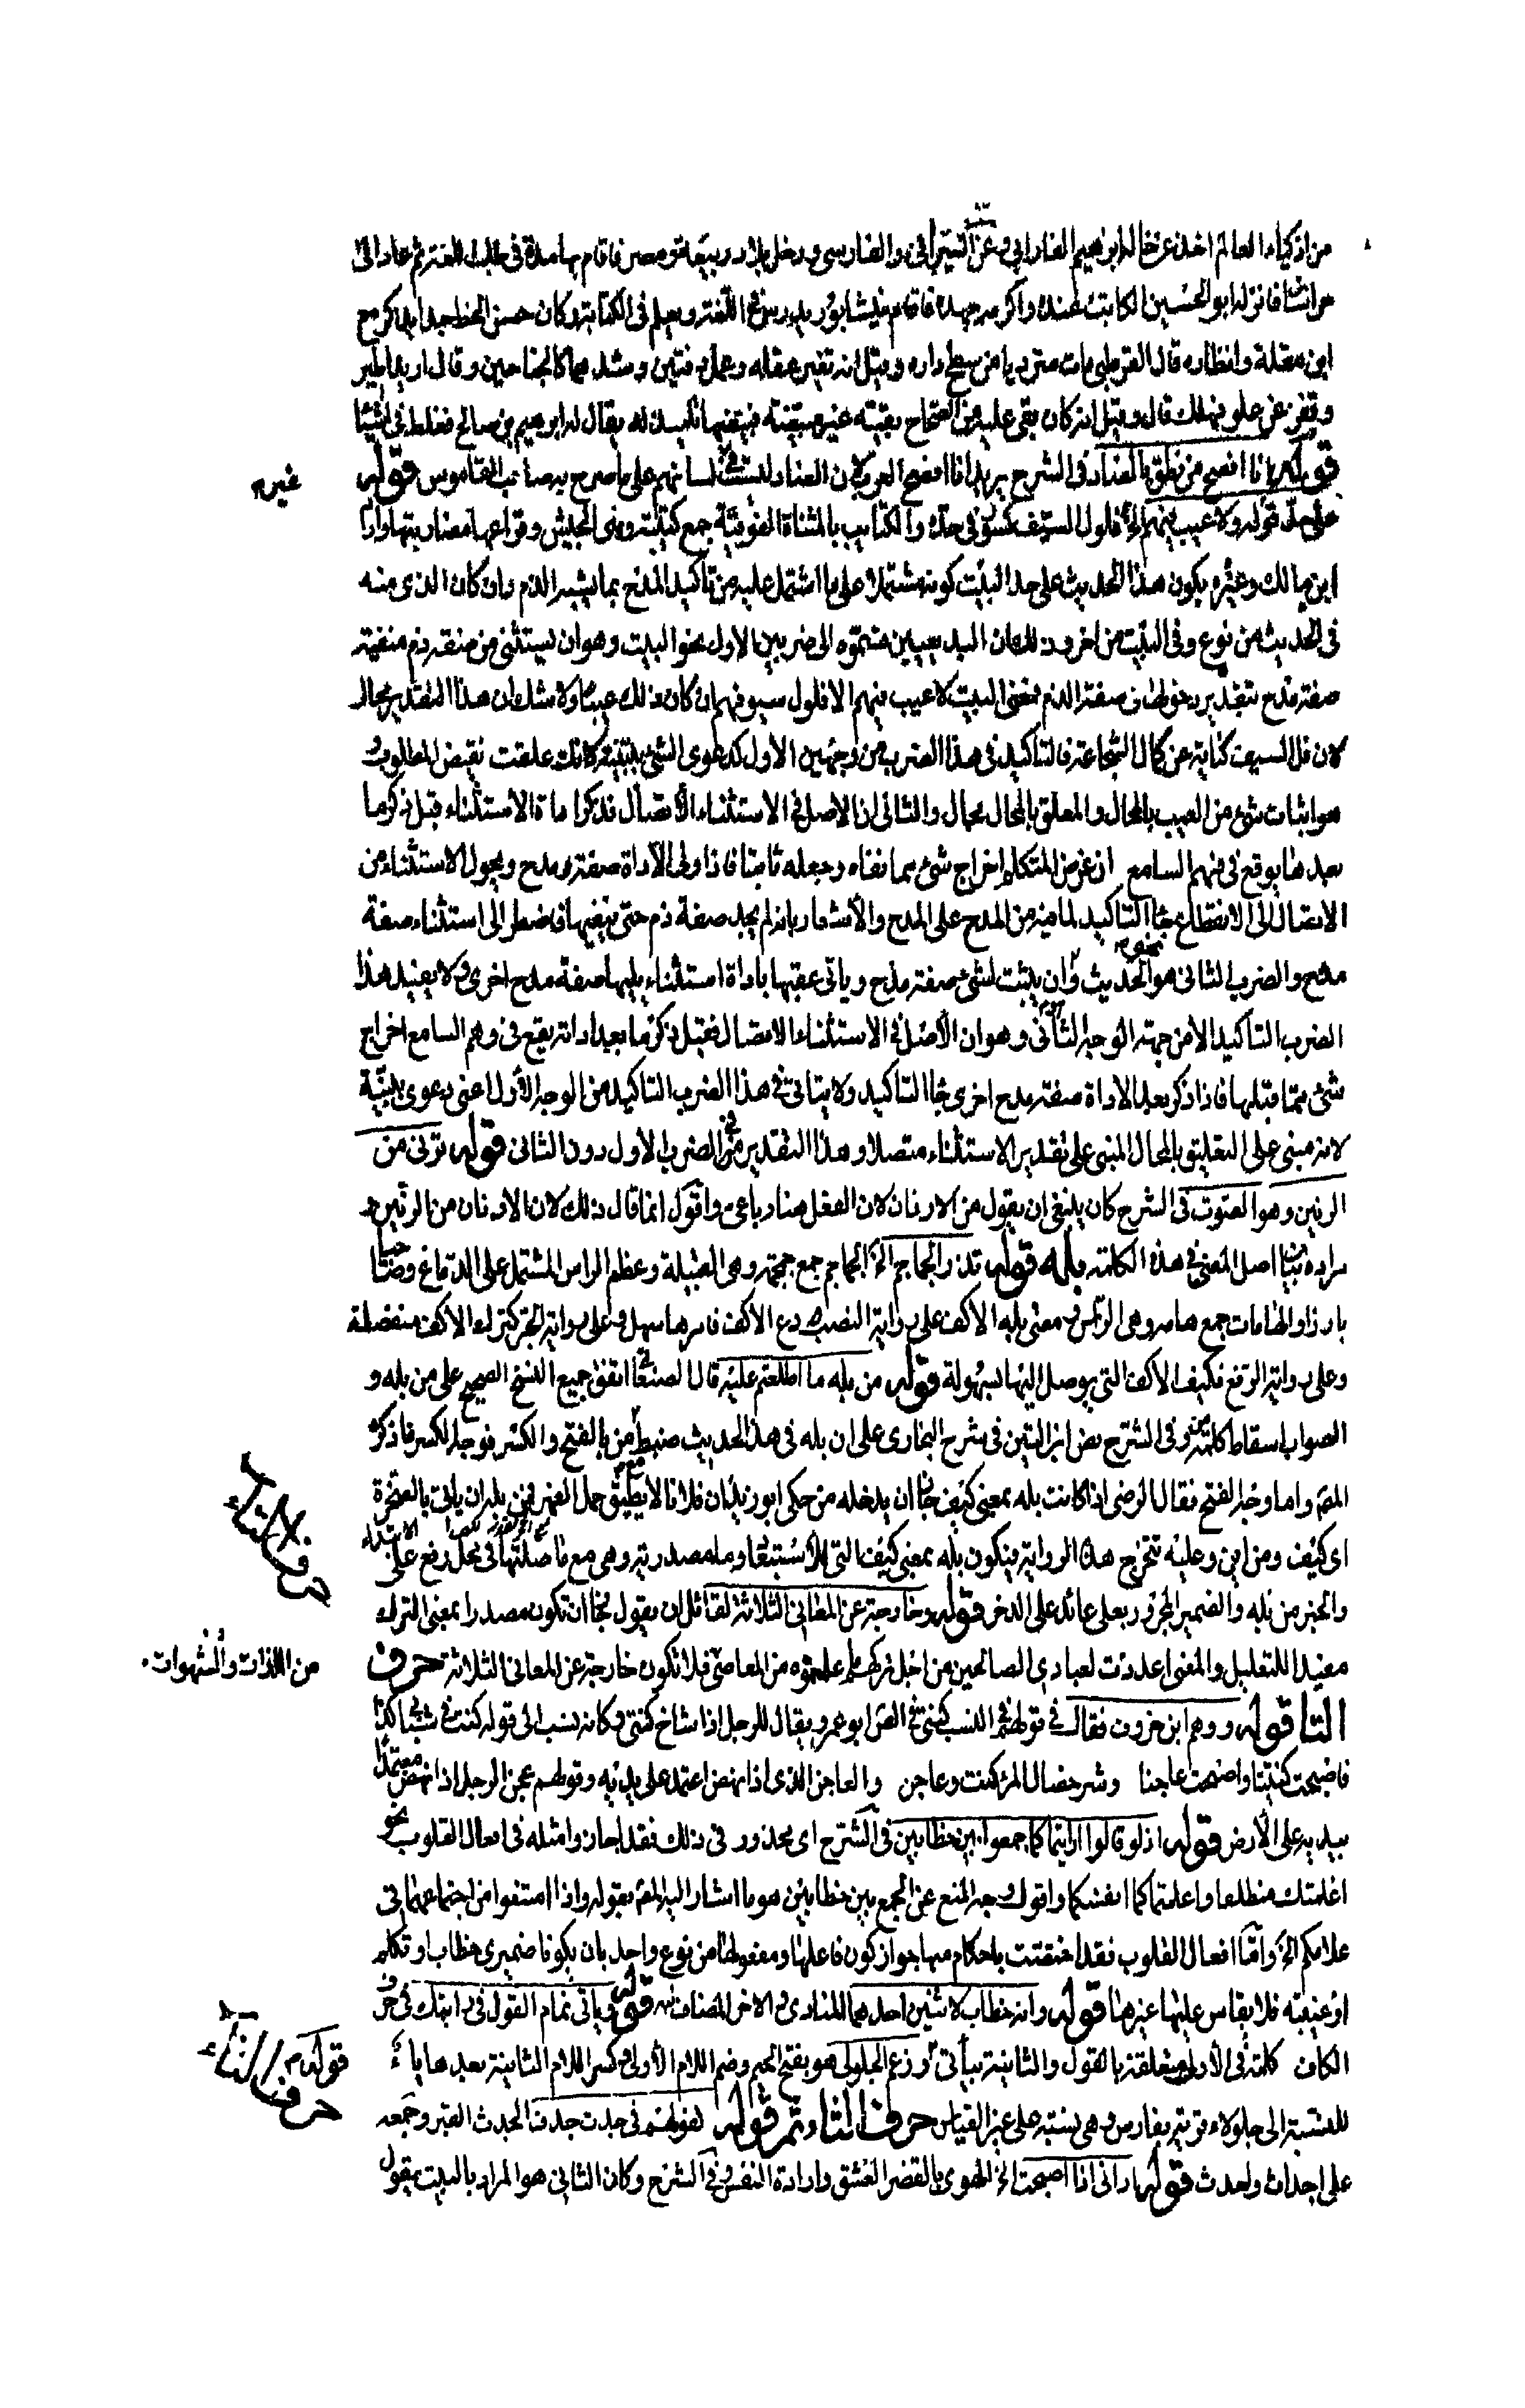 من اذكياء العالم اخذ عن خاله ابراهيم الفارابي وعن السيرافي والفارسي ودخل بلاد ربيعة ومضر فاقام بها مدة في طلب اللغة ثم عاد الى
خراسان فانزله ابو الحسين الكاتب عنده واكرمه جهده فاقام بنيسابور يدرس اللغة ويعلم في الكتابة وكان حسن الخط جدا يذكر مع
ابن مقلة وانظاره قال القرطبي مات مترديا من سطح داره وقيل انه تغير عقله وعمل دفتين وشدهما كالجناحين وقال اريد اطير
وقفز من علو فهلك قال وقيل انه كان بقى عليه من الصحاح بقية غير مبيضة فبيضها تلميذ له يقال له ابراهيم بن صالح فغلط في اشيا
قوله انا افصح من نطق بالضاد في الشرح يريد انا افصح العرب لان الضاد للست في لسانهم على ما صرح به صاحب القاموس قوله
على حد قوله ولا عيب فيهم الخ فلول السيف كسور في حده والكتايب بالمثناة الفوقية جمع كتيبة وهى الجيش وقراعها مضاربتها واراد
ابن مالك وغيره بكون هذا الحديث على حد البيت كونه مشتملا على ما اشتمل عليه من تأكيد المدح بما يشبه الذم وان كان الذى منه
في الحديث من نوع وفي البيت من اخر وذلك ان البديعيين قسموه الى ضربين الاول نحو البيت وهو ان يستثنى من صفة ذم منفية
صفة مدح بتقدير دخولها في صفة الذم فمعنى البيت لا عيب فيهم الا فلول سيوفهم ان كان ذلك عيبا ولا شك ان هذا التقدير محال
لان فل السيف كناية عن كمال الشجاعة فالتاكيد في هذا الضرب من وجهين الاول كدعوى الشئ ببينة كانك علقت نقيض المطلوب و
هو اثبات شئ من العيب بالمحال والمعلق بالمحال محال والثاني ان الاصل في الاستثناء الاتصال فذكر اداة الاستثناء قبل ذكر ما
بعدها يوقع في فهم السامع ان غرض المتكلم اخراج شئ مما نفاه وجعله ثابتا فاذا ولى الاداة صفة مدح وتحول الاستثناء من
الاتصال الى الانقطاع جاء التاكيد لما فيه من المدح على المدح والاشعار بانه لم يجد صفة ذم حتى ينفيها فاضطر الى استثناء صفة
مدح والضرب الثاني نحو الحديث وهو ان يثبت لشئ صفة مدح وياتى عقبها باداة استثناء يليها صفة مدح اخرى ولا يفيد هذا
الضرب التأكيد الا من جهة الوجه الثاني وهو ان الاصل في الاستثناء الاتصال فقبل ذكر ما بعد اداته يقع في وهم السامع اخراج
شئ مما قبلها فاذا ذكر بعد الاداة صفة مدح اخرى جاء التاكيد ولا يتاتى في هذا الضرب التاكيد من الوجه الاول اعنى دعوى ببينة
لانه مبنى على التعليق بالمحال المبنى على تقدير الاستثناء متصلا وهذا التقدير في الضرب الاول دون الثاني قوله ترنى من
الرنين وهو الصوت في الشرح كان ينبغى ان يقول من الارنان لان الفعل هنا رباعى واقول انما قال ذلك لان الارنان من الرنين
مراده بيان اصل المعنى في هذه الكلمة بله قوله تذر الجماجم الخ الجماجم جمع جمجمة وهى القبيلة وعظم الراس المشتمل على الدماغ وضاحيا
بارزا والهامات جمع هامة وهى الراس ومعنى بله الاكف على رواية النصب دع الاكف فامرها سهل وعلى رواية الجر ترك الاكف منفصلة
وعلى رواية الرفع فكيف الاكف التى يوصل اليها بسهولة قوله من بله ما اطلعتم عليه قال الصنعاني اتفق جميع النسخ الصحيح على من بله و
الصواب اسقاط كلمة من وفي الشرح نص ابن التين في شرح البخارى على ان بله في هذا الحديث ضبط من بالفتح والكسر فوجه الكسر ما ذكره
المص واما وجه الفتح فقال الرضى اذا كانت بله بمعنى كيف جاز ان يدخله من حكى ابو زيد ان فلانا لا يطيق حمل الفهر فمن بله ان ياتى بالصخرة
اى كيف ومن اين وعليه تتخرج هذه الرواية فيكون بله بمعنى كيف التى للاستبعاد وما مصدرية وهى مع صلتها في محل رفع على الابتداء
والخبر من بله والضمير المجرور بعلى عائد على الذخر قوله وخارجة عن المعاني الثلاثة لقائل ان يقول نختار ان تكون مصدرا بمعنى الترك
مفيدا للتعليل والمعنى اعددت لعبادى الصالحين من اجل تركهم ما علمتموه من المعاصى فلا تكون خارجة عن المعاني الثلاثة حرف
التا قوله ووهم ابن خروف فقال في قولهم في النسب كنتى في الغر ابو عمرو يقال للرجل اذا شاخ كنتى وكانه نسب الى قوله كنت في شبابى كذا
فاصبحت كنتيا واصبحت عاجنا وشر خصال المرء كنت وعاجن والعاجن الذى اذا نهض اعتمد على يديه وقولهم عجن الرجل اذا نهض معتمدا
بيديه على الارض قوله اذ لو قالوا ارايتما كما جمعوا بين خطابين في الشرح اى محذور في ذلك فقد اجازوا مثله في افعال القلوب نحو
اعلمتك منطلقا واعلمتماكما انفسكما واقول وجه المنع عن الجمع بين خطابين هو ما اشار اليه المص بقوله واذا امتنعوا من اجتماعهما في
غلامكم الخ واما افعال القلوب فقد اختصت باحكام منها جواز كون فاعلها ومفعولها من نوع واحد بان يكونا ضميرى خطاب او تكلم
او غيبة فلا يقاس عليها غيرها قوله وانه خطاب لاثنين احدهما المنادى والاخر المضاف اليه قوله وياتى تمام القول في ارايتك في حرف
الكاف كلمة في الاولى متعلقة بالقول والثانية بيأتى وزعم الجلولى هو بفتح الجيم وضم اللام الاولى وكسر اللام الثانية بعدها ياء
للنسبة الى جلولاء قرية بفارس وهى نسبة على غير القياس حرف الثاء ثم قوله لقولهم في جدث جدف الجدث القبر وجمعه
على اجداث واجدث قوله ارانى اذا اصبحت الخ الهوى بالقصر العشق وارادة النفس وفي الشرح وكان الثاني هو المراد بالبيت بقول
غيره
حرف التاء
من اللذات والشهوات
قوله
حرف الثاء